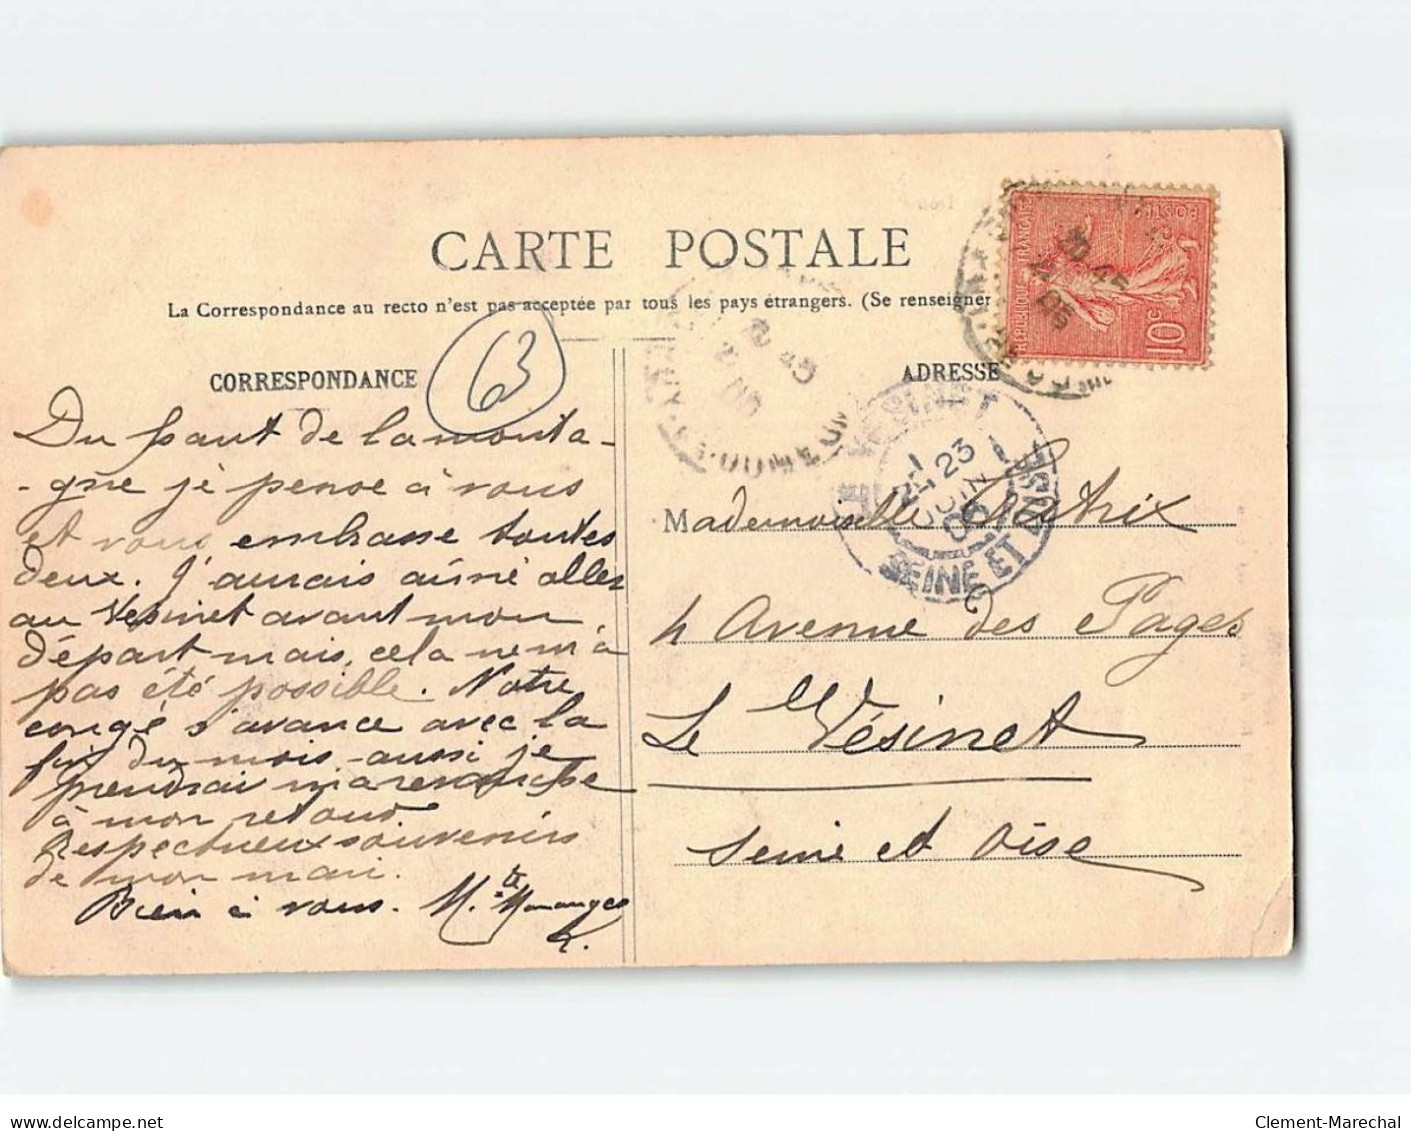 CARTE POSTALE
La Correspondance au recto n'est pas acceptée par tous les pays étrangers. (Se renseigner
CORRESPONDANCE
63
ADRESSE
Du haut de la monta-
-gne je pense à vous
et vous embrasse toutes
deux. J'aurais aimé aller
au Vésinet avant mon
départ mais, cela ne m'a
pas été possible. Notre
congé s'avance avec la
fin du mois aussi je
prendrai ma revanche
à mon retour
Respectueux souvenirs
de mon mari.
Bien à vous. M.
Mademoiselle
4 Avenue des Pages
Le Vésinet
Seine et Oise
RÉPUBLIQUE FRANÇAISE
POSTES
10c
10 45
VESINET
23
JUIN
06
SEINE ET OISE
PUY-DE-DOME
delcampe.net
Clement-Marechal